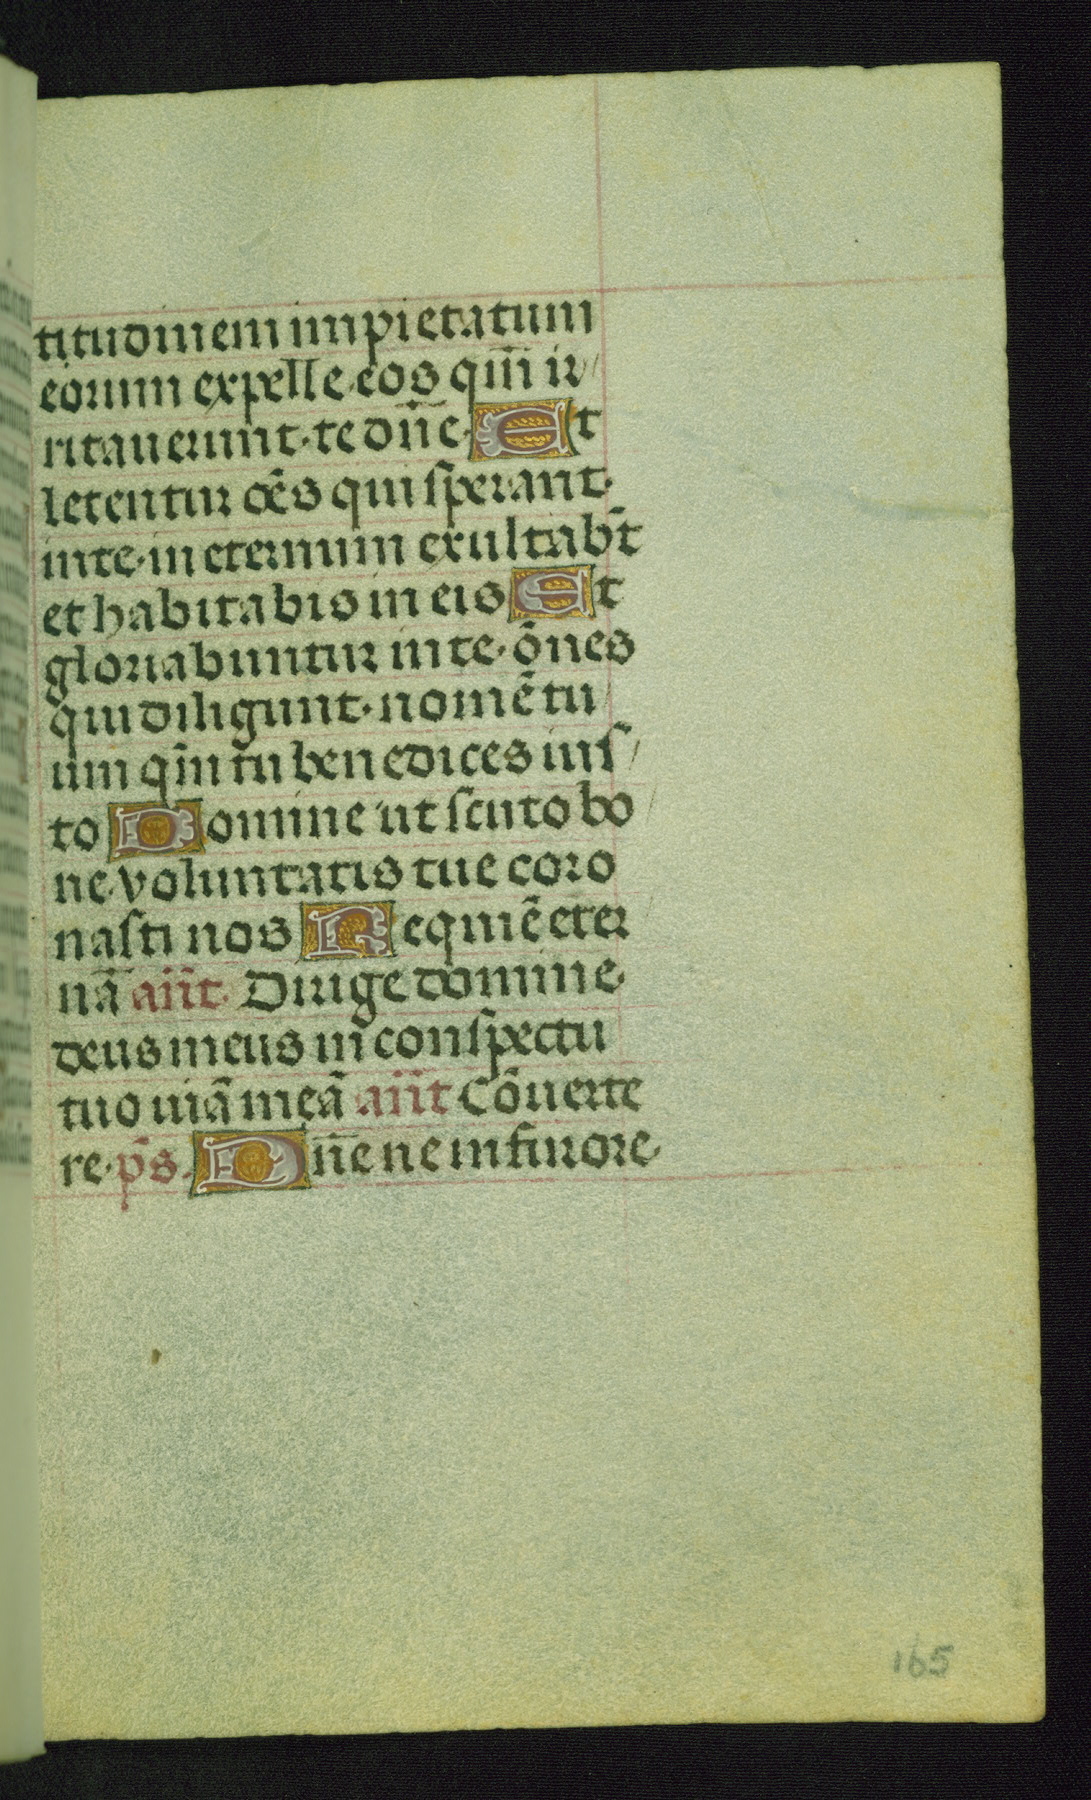 titudinem impietatum
eorum expelle eos qm̄ ir
ritauerunt·te dn̄e·Et
letentur oēs qui sperant·
inte·in eternum exultab̄t
et habitabis in eis Et
gloriabuntur in te·ōnes
qui diligunt·nomē tu
um qm̄ tu benedices ius
to Domine ut scuto bo
ne voluntatis tue coro
nasti nos Requiē eter
nā añt· Dirige domine·
deus meus in conspectu
tuo uiā meā añt Cōuerte
re·p̄s·Dn̄e ne in furore·
165